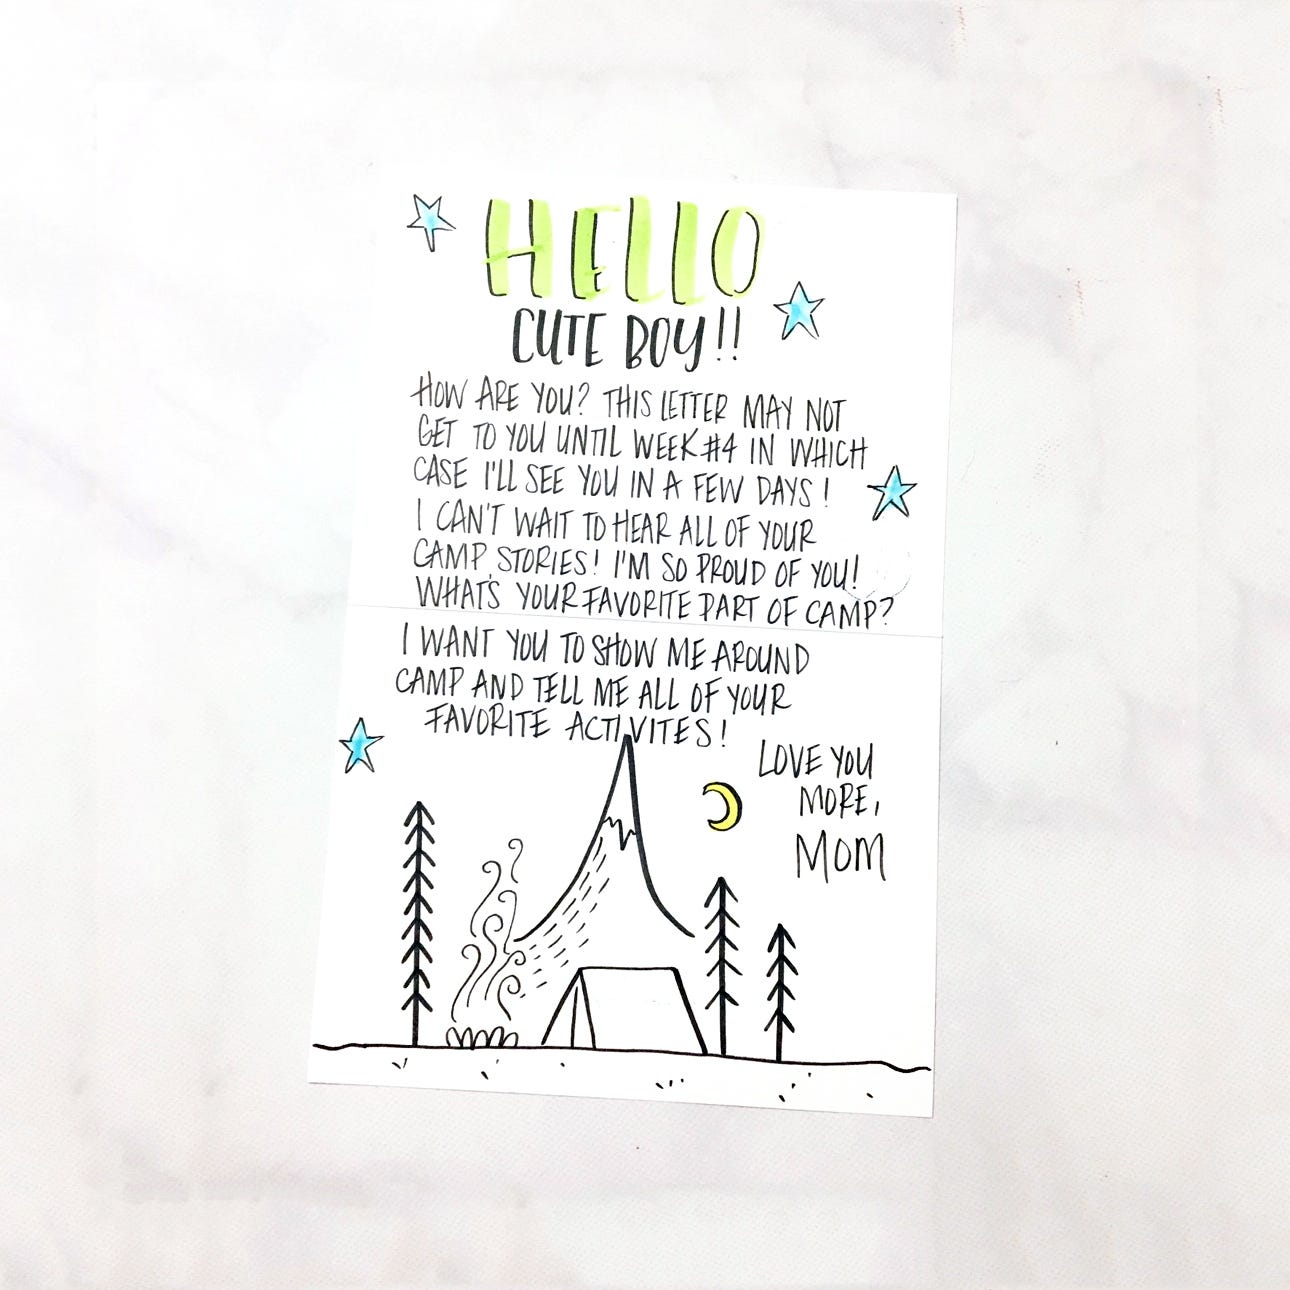 HELLO
CUTE BOY!!
HOW ARE YOU? THIS LETTER MAY NOT
GET TO YOU UNTIL WEEK #4 IN WHICH
CASE I'LL SEE YOU IN A FEW DAYS!
I CAN'T WAIT TO HEAR ALL OF YOUR
CAMP STORIES! I'M SO PROUD OF YOU!
WHAT'S YOUR FAVORITE PART OF CAMP?
I WANT YOU TO SHOW ME AROUND
CAMP AND TELL ME ALL OF YOUR
FAVORITE ACTIVITES!
LOVE YOU
MORE,
MOM